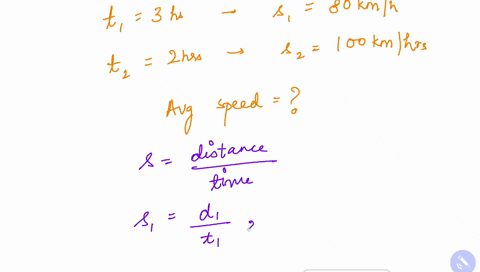 t₁ = 3 hs → s₁ = 80 km/h
t₂ = 2hrs → s₂ = 100 km/hrs
Avg speed = ?
s = distance/time
s₁ = d₁/t₁ ,